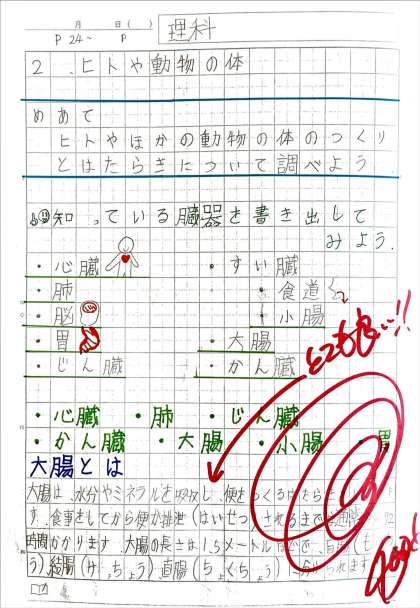 月 日( ) 理科
P 24~ P
2.ヒトや動物の体
めあて
ヒトやほかの動物の体のつくり
とはたらきについて調べよう
知っている臓器を書き出して
みよう.
・心臓 ・すい臓
・肺 ・食道
・脳 ・小腸
・胃 ・大腸
・じん臓 ・かん臓
とても良い!!
・心臓 ・肺 ・じん臓
・かん臓 ・大腸 ・小腸 ・胃
大腸とは
大腸は、水分やミネラルを吸収し、便をつくるはたらき
す。食事をしてから便が排泄(はいせつ)されるまで
時間かかります。大腸の長さは1.5メートルほどで、盲腸(も
う)、結腸(けっちょう)直腸(ちょくちょう)に分けられます